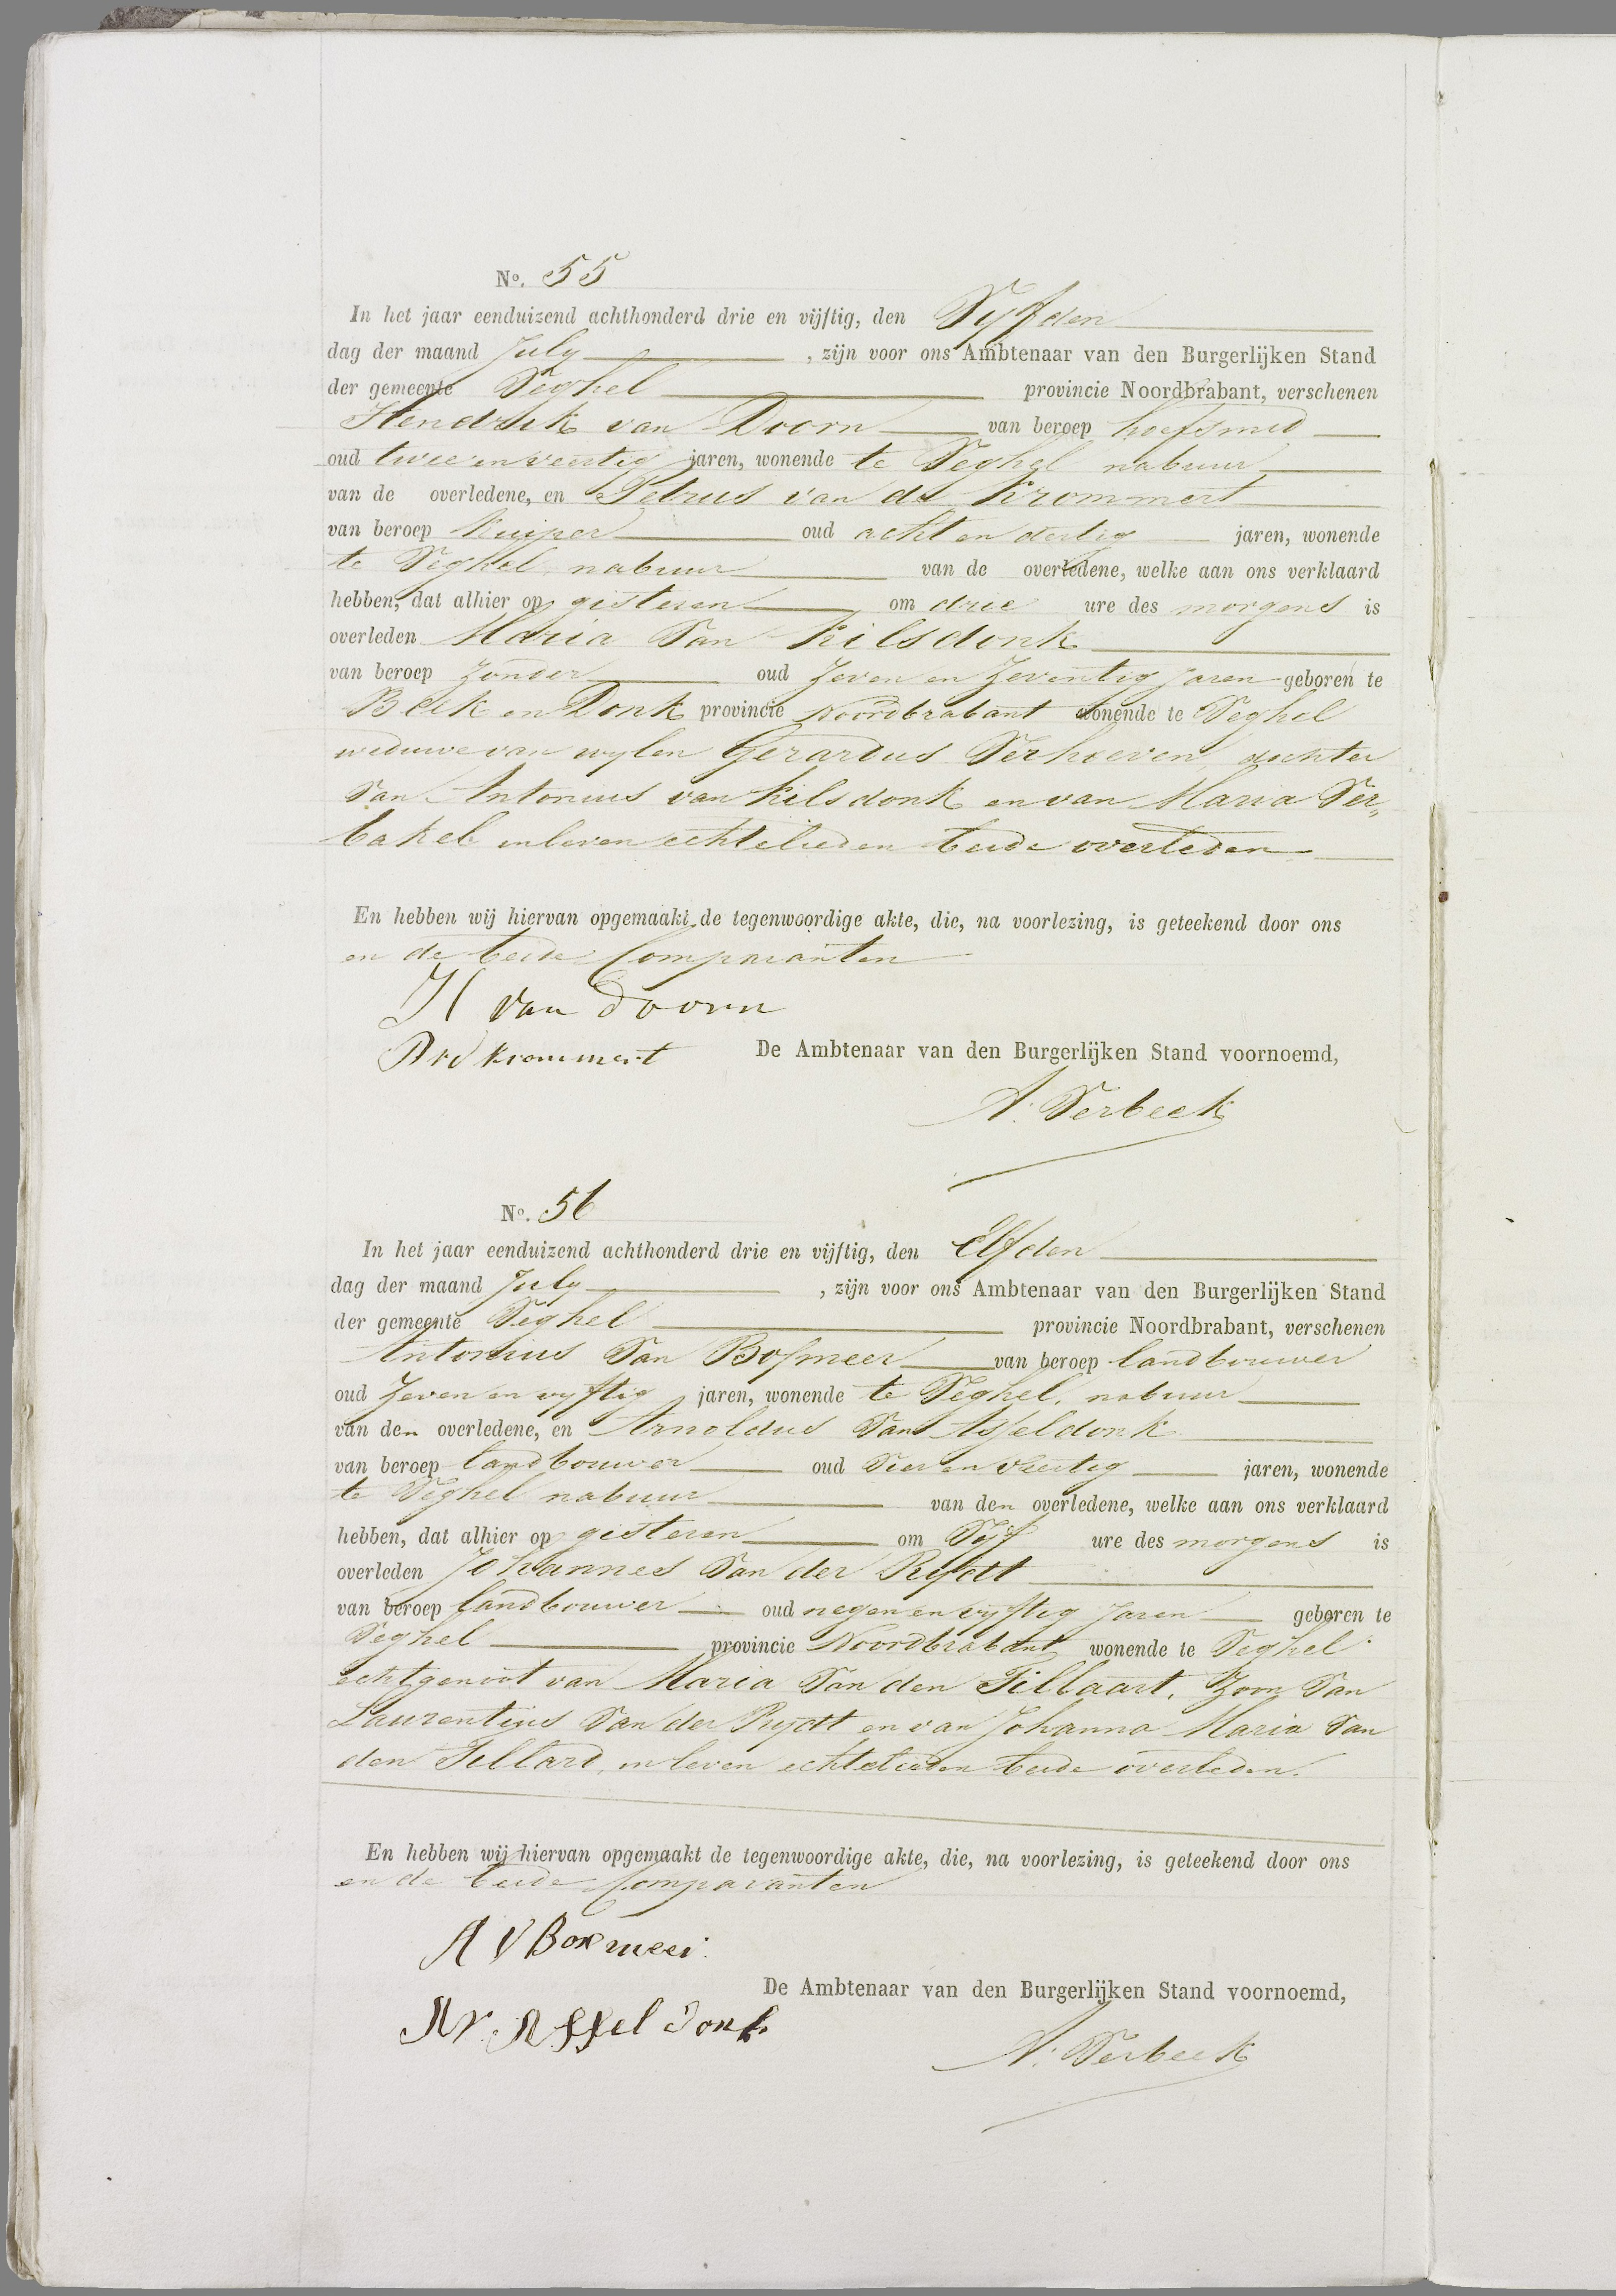 No. 55
In het jaar eenduizend achthonderd drie en vijftig, den Vyfden
dag der maand July , zijn voor ons Ambtenaar van den Burgerlijken Stand
der gemeente Veghel provincie Noordbrabant, verschenen
Hendrik van Doorn van beroep hoefsmid
oud twee en veertig jaren, wonende te Veghel nabuur
van de overledene, en Petrus van de Krommert
van beroep Kuiper oud acht en dertig jaren, wonende
te Veghel nabuur van de overledene, welke aan ons verklaard
hebben, dat alhier op gisteren om drie ure des morgens is
overleden Maria Van Kilsdonk
van beroep zonder oud Zeven en Zeventig jaren geboren te
Beek en Donk provincie Noordbrabant wonende te Veghel
weduwe van wylen Gerardus Verhoeven, dochter
Van Antonius van Kilsdonk en van Maria Ver„
bakel in leven echtelieden beide overleden
En hebben wij hiervan opgemaakt de tegenwoordige akte, die, na voorlezing, is geteekend door ons
en de beide Comparanten
H van Doorn
P vd krommert De Ambtenaar van den Burgerlijken Stand voornoemd,
A. Verbeek
No. 56
In het jaar eenduizend achthonderd drie en vijftig, den Elfden
dag der maand July , zijn voor ons Ambtenaar van den Burgerlijken Stand
der gemeente Veghel provincie Noordbrabant, verschenen
Antonius Van Bosmeer van beroep landbouwer
oud Zeven en vyftig jaren, wonende te Veghel, nabuur
van den overledene, en Arnoldus Van Asseldonk
van beroep landbouwer oud Vier en Veertig jaren, wonende
te Veghel nabuur van den overledene, welke aan ons verklaard
hebben, dat alhier op gisteren om Vyf ure des morgens is
overleden Johannes Van der Rydt
van beroep landbouwer oud negen en vyftig jaren geboren te
Veghel provincie Noordbrabant wonende te Veghel
echtgenoot van Maria Van den Tillaart, Zoon Van
Laurentius Van der Rydt en van Johanna Maria Van
den Tillard, in leven echtelieden beide overleden.
En hebben wij hiervan opgemaakt de tegenwoordige akte, die, na voorlezing, is geteekend door ons
en de beide Comparanten
A V Boxmeer
De Ambtenaar van den Burgerlijken Stand voornoemd,
A v. Asseldonk
A. Verbeek